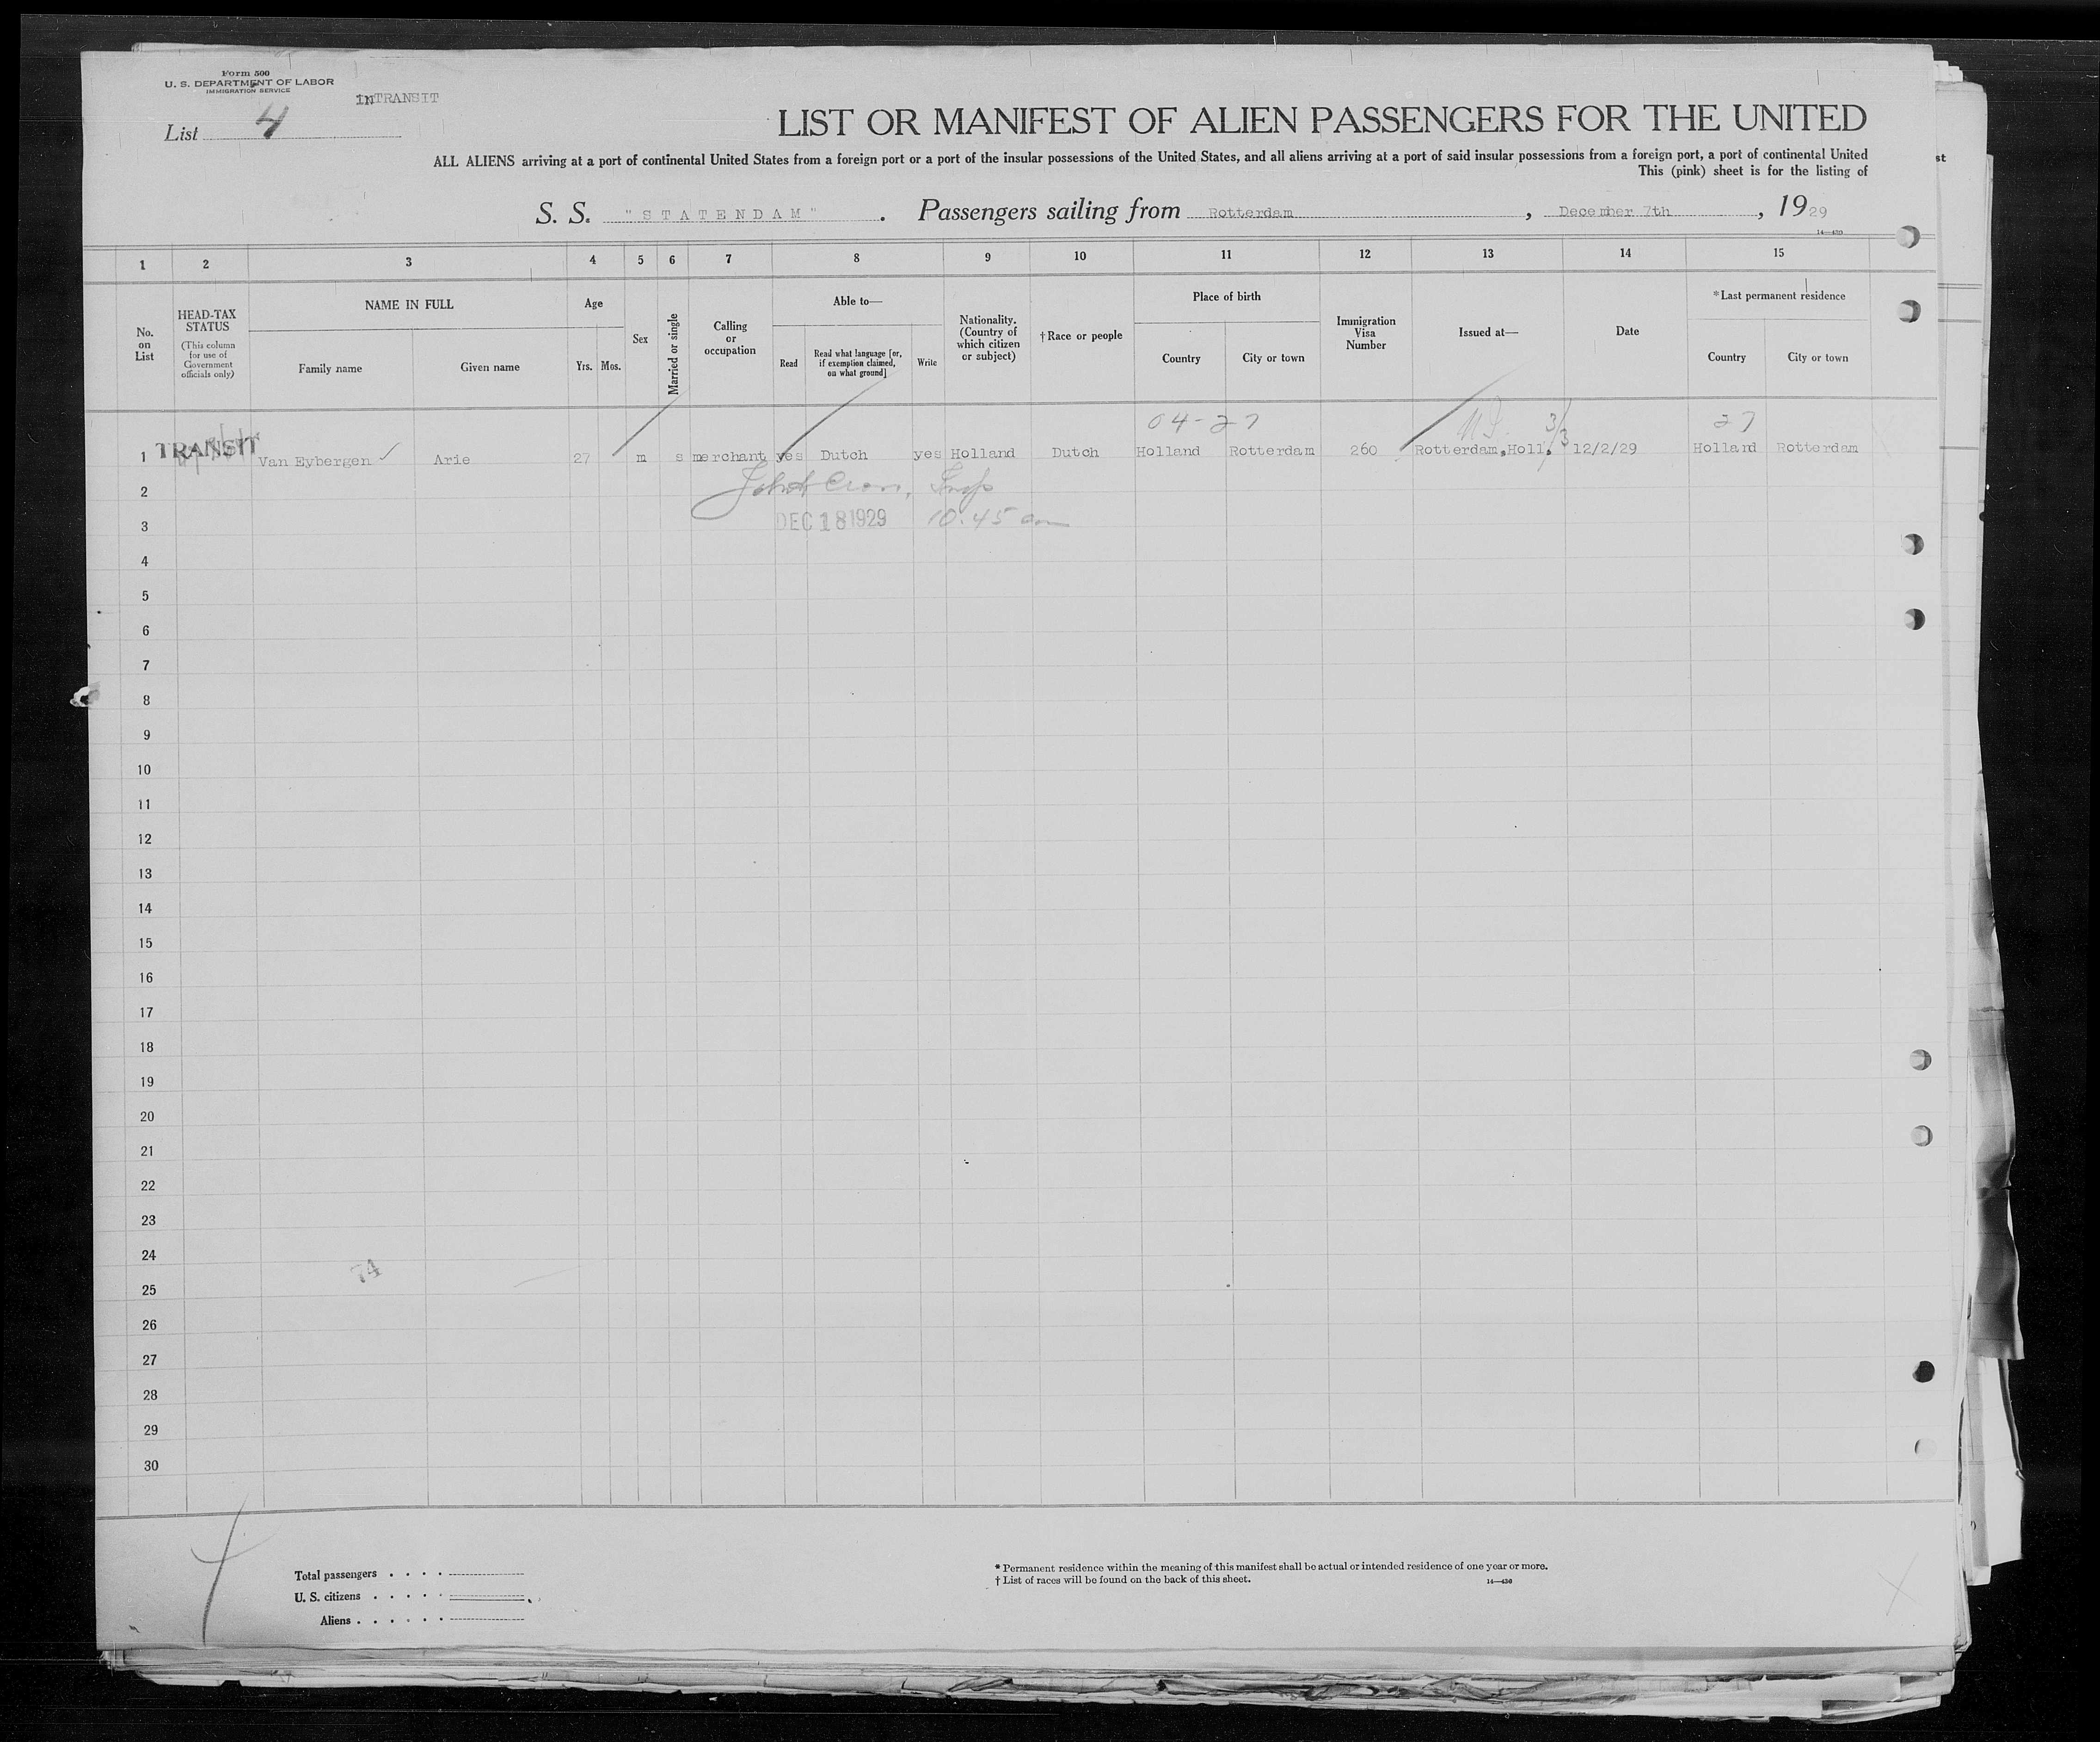 Form 500
U. S. DEPARTMENT OF LABOR
IMMIGRATION SERVICE
InTRANSIT
List 4
LIST OR MANIFEST OF ALIEN PASSENGERS FOR THE UNITED
ALL ALIENS arriving at a port of continental United States from a foreign port or a port of the insular possessions of the United States, and all aliens arriving at a port of said insular possessions from a foreign port, a port of continental United
This (pink) sheet is for the listing of
st
S. S. "STATENDAM". Passengers sailing from Rotterdam, December 7th, 1929
14—430
1 2 3 4 5 6 7 8 9 10 11 12 13 14 15
No. on List
HEAD-TAX STATUS
(This column for use of Government officials only)
NAME IN FULL
Family name Given name
Age
Yrs. Mos.
Sex
Married or single
Calling or occupation
Able to—
Read
Read what language [or, if exemption claimed, on what ground]
Write
Nationality. (Country of which citizen or subject)
†Race or people
Place of birth
Country City or town
Immigration Visa Number
Issued at—
Date
*Last permanent residence
Country City or town
04-27 3/3 27
1 TRANSIT Van Eybergen ✓ Arie 27 m s merchant yes Dutch yes Holland Dutch Holland Rotterdam 260 Rotterdam,Holl. 12/2/29 Holland Rotterdam
2 Insp
3 DEC 18 1929 10.45 am
4
5
6
7
8
9
10
11
12
13
14
15
16
17
18
19
20
21
22
23
24
74
25
26
27
28
29
30
Total passengers . . . .
U. S. citizens . . . . .
Aliens . . . . . .
* Permanent residence within the meaning of this manifest shall be actual or intended residence of one year or more.
† List of races will be found on the back of this sheet.
14—430